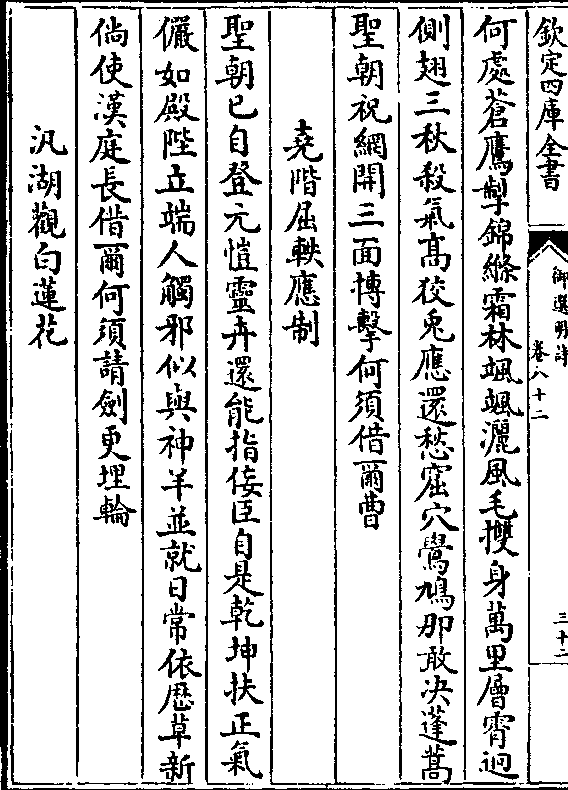 欽定四庫全書
御選明詩
卷八十二
三十二
何處蒼鷹掣錦絛霜林颯颯灑風毛㩳身萬里層霄迥
側翅三秋殺氣髙狡兎應還愁窟穴鸒鳩那敢决蓬蒿
聖朝祝網開三面搏擊何須借爾曹
堯階屈軼應制
聖朝已自登元愷靈卉還能指佞臣自是乾坤扶正氣
儼如殿陛立端人觸邪似與神羊並就日常依歴草新
倘使漢庭長借爾何須請劍更埋輪
汎湖觀白蓮花